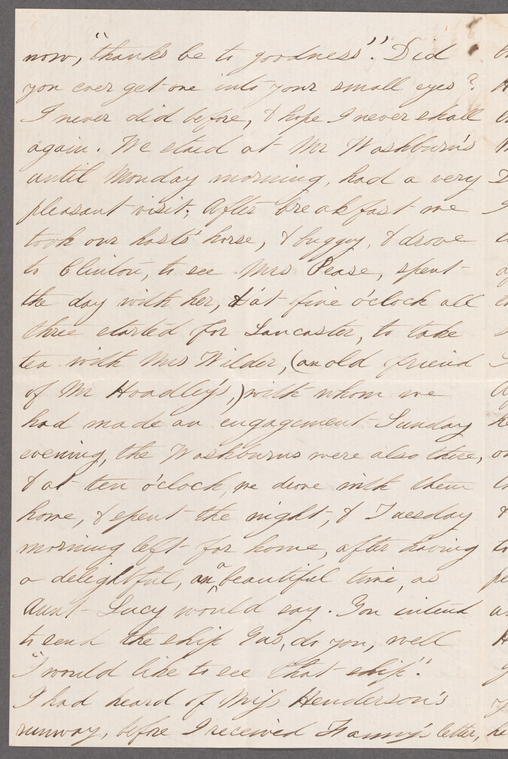 now, "thanks be to goodness". Did
you ever get one into your small eyes?
I never did before, & hope I never shall
again. We staid at Mr Washburn's
until Monday morning, had a very
pleasant visit; After breakfast we
took our hosts' horse, & buggy, & drove
to Clinton, to see Mrs Pease, spent
the day with her, & at five o'clock all
three started for Lancaster, to take
tea with Mrs Wilder, (an old friend
of Mr Hoadley's,) with whom we
had made an engagement Sunday
evening, the Washburns were also there,
& at ten o'clock, we drove with them
home, & spent the night, & Tuesday
morning left for home, after having
a delightful, an a beautiful time, as
Aunt Lucy would say. You intend
to send the ship Gus, do you, well
"I would like to see that ship".
I had heard of Miss Henderson's
runway, before I received Fanny's letter,